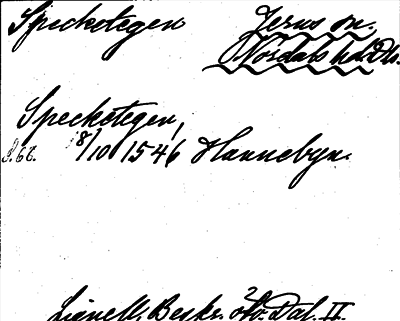 Speckotegen Jerns sn.
Nordals hd. Dls.
Speckotegen,
S. 68. 8/10 1546 Hannebyn.
Lignell, Beskr. öfv. Dal. II.